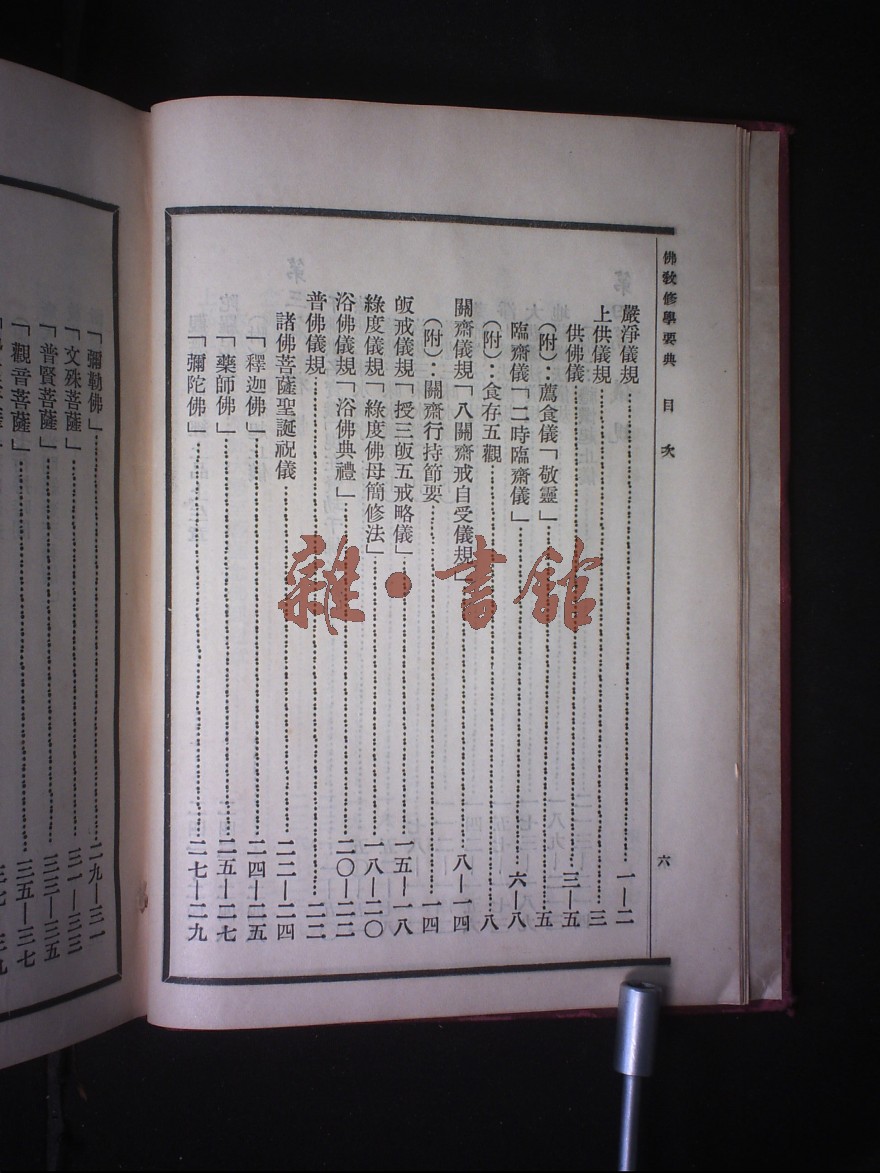 佛教修學要典 目次 六
嚴淨儀規 一—二
上供儀規 三
供佛儀 三—五
（附）：薦食儀「敬靈」 五
臨齋儀「二時臨齋儀」 六—八
（附）：食存五觀 八
關齋儀規「八關齋戒自受儀規」 八—一四
（附）：關齋行持節要 一四
皈戒儀規「授三皈五戒略儀」 一五—一八
綠度儀規「綠度佛母簡修法」 一八—二〇
浴佛儀規「浴佛典禮」 二〇—二二
普佛儀規 二二
諸佛菩薩聖誕祝儀 二二—二四
「釋迦佛」 二四—二五
「藥師佛」 二五—二七
「彌陀佛」 二七—二九
「彌勒佛」 二九—三一
「文殊菩薩」 三一—三三
「普賢菩薩」 三三—三五
「觀音菩薩」 三五—三七
雜·書館